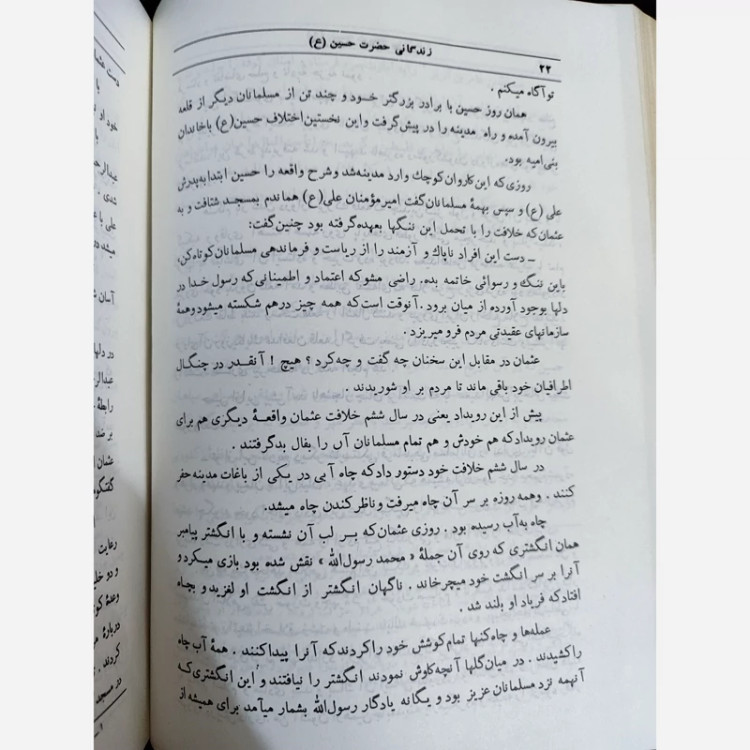 زندگانی حضرت حسین (ع)
۲۲
تو آگاه میکنم .
همان روز حسین با برادر بزرگتر خود و چند تن از مسلمانان دیگر از قلعه
بیرون آمده و راه مدینه را در پیش گرفت و این نخستین اختلاف حسین(ع) با خاندان
بنی‌امیه بود.
روزی که این کاروان کوچك وارد مدینه شد و شرح واقعه را حسین ابتدا به پدرش
علی (ع) و سپس بهمهٔ مسلمانان گفت امیرمؤمنان علی(ع) هماندم بمسجد شتافت و به
عثمان که خلافت را با تحمل این ننگها بعهده گرفته بود چنین گفت:
ـ دست این افراد ناپاك و آزمند را از ریاست و فرماندهی مسلمانان کوتاه کن،
باین ننگ و رسوائی خاتمه بده. راضی مشو که اعتماد و اطمینانی که رسول خدا در
دلها بوجود آورده از میان برود . آنوقت است که همه چیز درهم شکسته میشود و همهٔ
سازمانهای عقیدتی مردم فرو میریزد .
عثمان در مقابل این سخنان چه گفت و چه کرد ؟ هیچ ! آنقدر در چنگال
اطرافیان خود باقی ماند تا مردم بر او شوریدند .
پیش از این رویداد یعنی در سال ششم خلافت عثمان واقعهٔ دیگری هم برای
عثمان رویداد که هم خودش و هم تمام مسلمانان آن را بفال بد گرفتند .
در سال ششم خلافت خود دستور داد که چاه آبی در یکی از باغات مدینه حفر
کنند . و همه روزه بر سر آن چاه میرفت و ناظر کندن چاه میشد.
چاه به آب رسیده بود . روزی عثمان که بر لب آن نشسته و با انگشتر پیامبر
همان انگشتری که روی آن جملهٔ « محمد رسول‌الله » نقش شده بود بازی میکرد و
آنرا بر سر انگشت خود میچرخاند . ناگهان انگشتر از انگشت او لغزید و بچاه
افتاد که فریاد او بلند شد .
عمله‌ها و چاه‌کنها تمام کوشش خود را کردند که آنرا پیدا کنند . همهٔ آب چاه
را کشیدند . در میان گلها آنچه کاوش نمودند انگشتر را نیافتند و این انگشتری که
آنهمه نزد مسلمانان عزیز بود و یگانه یادگار رسول‌الله بشمار میآمد برای همیشه از